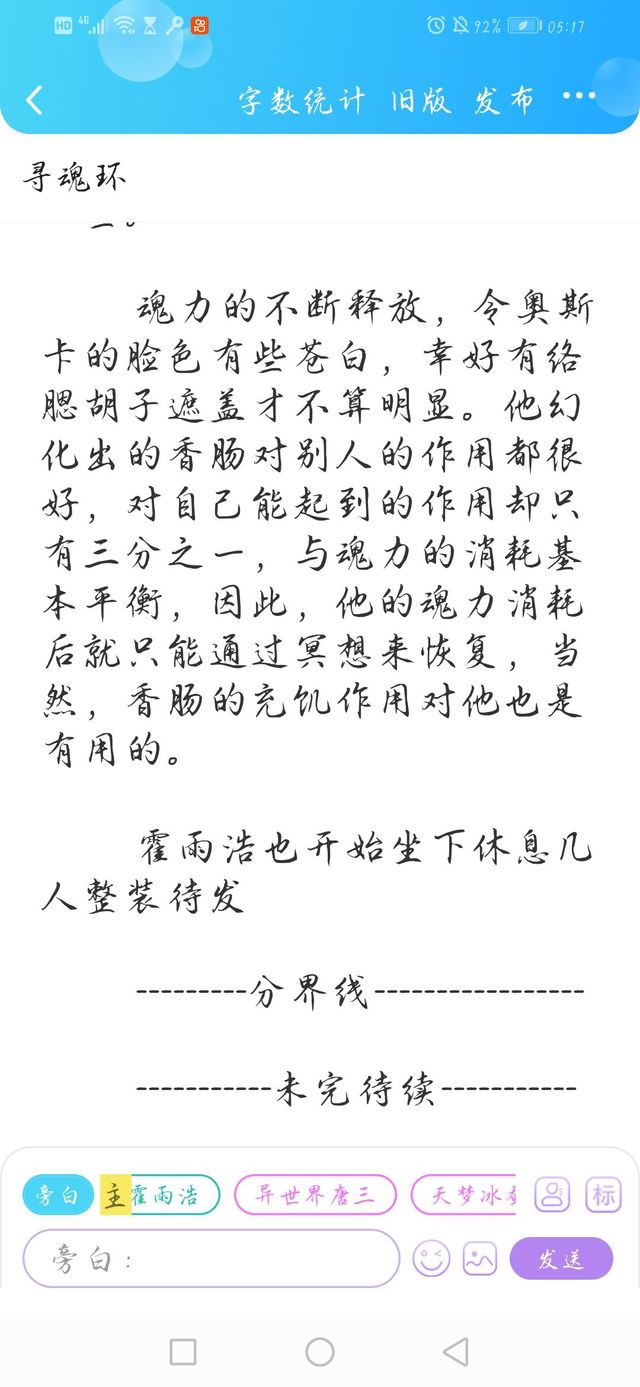 HD 4G 92% 05:17
字数统计 旧版 发布 ···
寻魂环
魂力的不断释放，令奥斯
卡的脸色有些苍白，幸好有络
腮胡子遮盖才不算明显。他幻
化出的香肠对别人的作用都很
好，对自己能起到的作用却只
有三分之一，与魂力的消耗基
本平衡，因此，他的魂力消耗
后就只能通过冥想来恢复，当
然，香肠的充饥作用对他也是
有用的。
霍雨浩也开始坐下休息几
人整装待发
---------分界线-----------------
-----------未完待续-----------
旁白 主 霍雨浩 异世界唐三 天梦冰 标
旁白： 发送